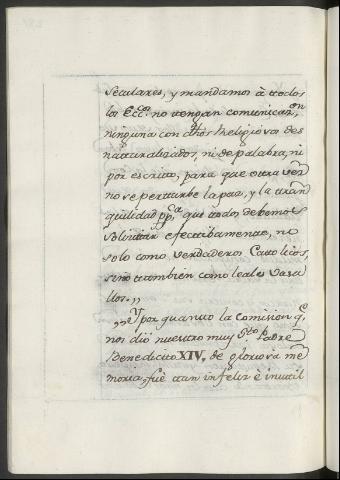 Seculares, y mandamos à todos
los Ecc.cos no tengan comunicaz.on
ninguna con dhos Religiosos des
naturalizados, ni de palabra, ni
por escrito, para que otra vez
no se perturbe la paz, y la tran
quilidad pp.ca que todos debemos
solicitar efectibamente, no
solo como verdaderos Catolicos,
sino tambien como leales Vasa
llos.,,
,,Y por quanto la Comision q.e
nos dió nuestro muy S.to Padre
Benedicto XIV, de gloriosa me
moria, fuè tan infeliz è inutil